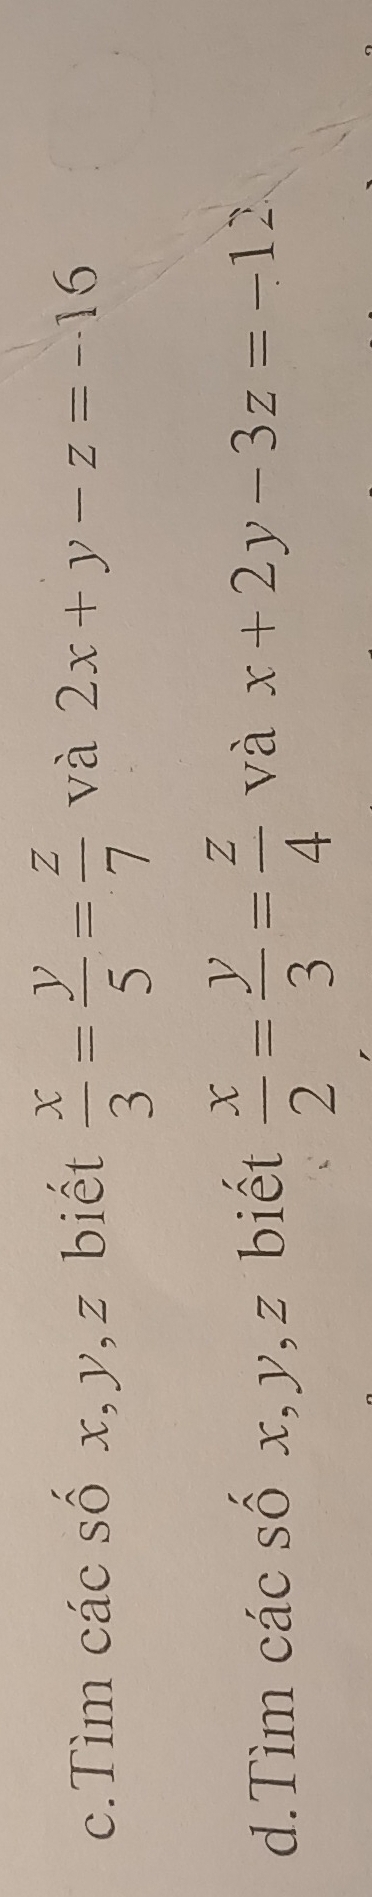 c.Tìm các số x,y,z biết x/3 = y/5 = z/7 và 2x + y − z = −16
d.Tìm các số x,y,z biết x/2 = y/3 = z/4 và x + 2y − 3z = −12